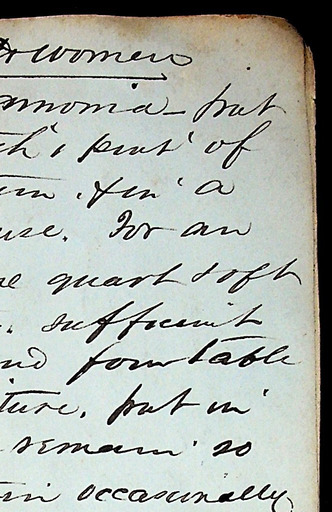 women
mmonia - put
1 pint of
& in a
use. For an
quart soft
sufficient
four table
ture. put in
remain so
occasionally